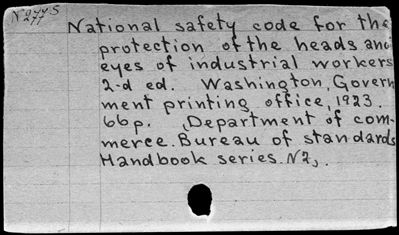 National safety code for the
protection of the heads and
eyes of industrial workers
2-d ed. Washington, Govern
ment printing office, 1923.
66p. (Department of com-
merce. Bureau of standards
Handbook series. N2).